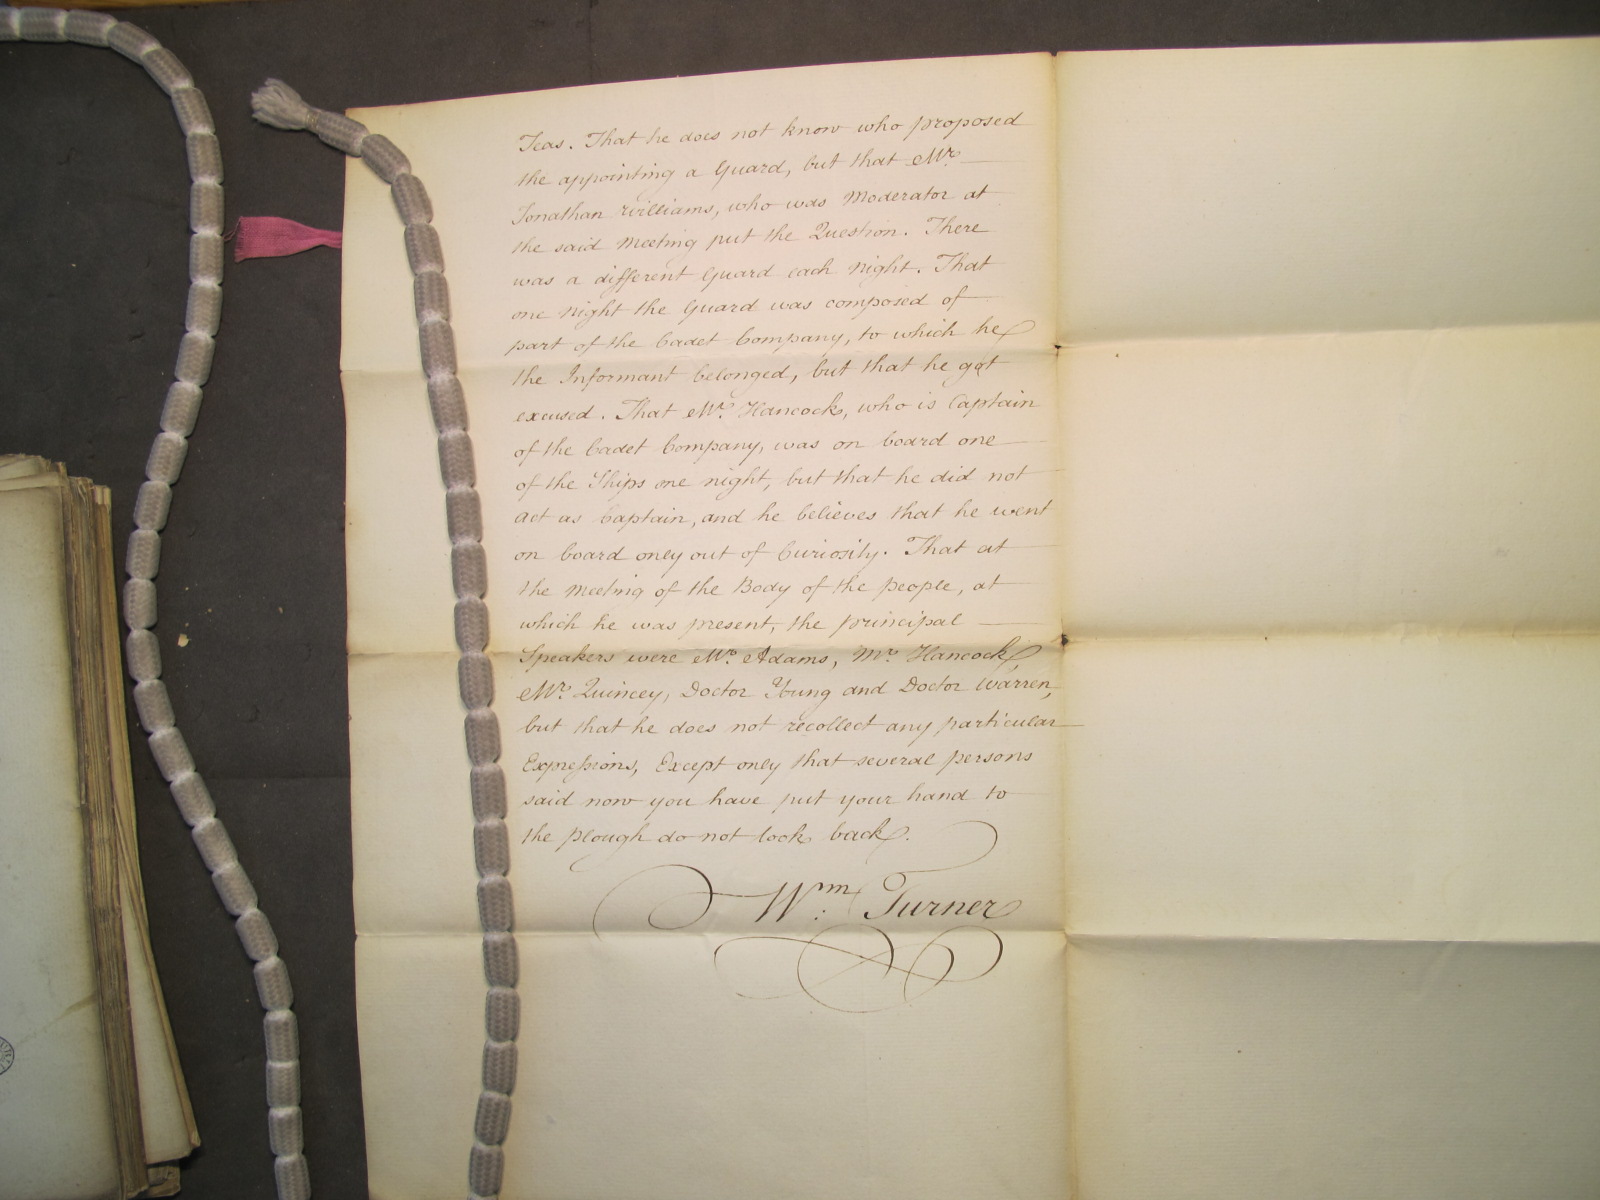 Teas. That he does not know who proposed
the appointing a Guard, but that Mr.
Jonathan Williams, who was Moderator at
the said Meeting put the Question. There
was a different Guard each Night. That
one Night the Guard was composed of
part of the Cadet Company, to which he
the Informant belonged, but that he got
excused. That Mr. Hancock, who is Captain
of the Cadet Company, was on board one
of the Ships one night, but that he did not
act as Captain, and he believes that he went
on board only out of Curiosity. That at
the Meeting of the Body of the people, at
which he was present, the principal
Speakers were Mr. Adams, Mr. Hancock,
Mr. Quincey, Doctor Young and Doctor Warren,
but that he does not recollect any particular
Expressions, Except only that several persons
said now you have put your hand to
the plough do not look back.
Wm. Turner